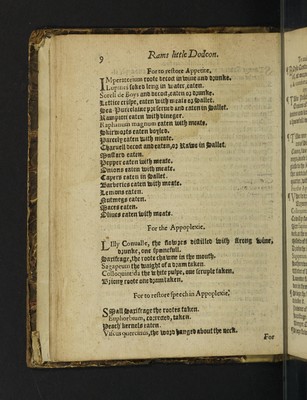 9 Rams little Dodeon.
For to restore Appetite.
IMperatorium roote decoct in wine and drunke.
Lupines soked long in water, eaten.
Sorell de Boys and decoct, eaten or drunke.
Lettice crispe, eaten with meats or Sallet.
Sea Purcelaine preserved and eaten in Sallet.
Rampions eaten with vineger.
Raphanum magnum eaten with meats.
Skirwoots eaten boyled.
Parcely eaten with meate.
Charvell decoct and eaten, or Rawe in Sallet.
Mustard eaten.
Pepper eaten with meate.
Onions eaten with meate.
Capers eaten in Sallet.
Barberies eaten with meate.
Lemons eaten.
Nutmegs eaten.
Maces eaten.
Olives eaten with meats.
For the Appoplexie.
LIlly Convalle, the flowers distilled with strong wine,
drunke, one spoonefull.
Saxifrage, the roote chawne in the mouth.
Sagapeum the waight of a dram taken.
Colloquintida the white pulpe, one scruple taken.
Briony roote one dram taken.
For to restore speech in Appoplexie.
SMall Saxifrage the rootes taken.
Euphorbium, corrected, taken.
Peach kernels eaten.
Viscus quercinus, the wood hanged about the neck.
For